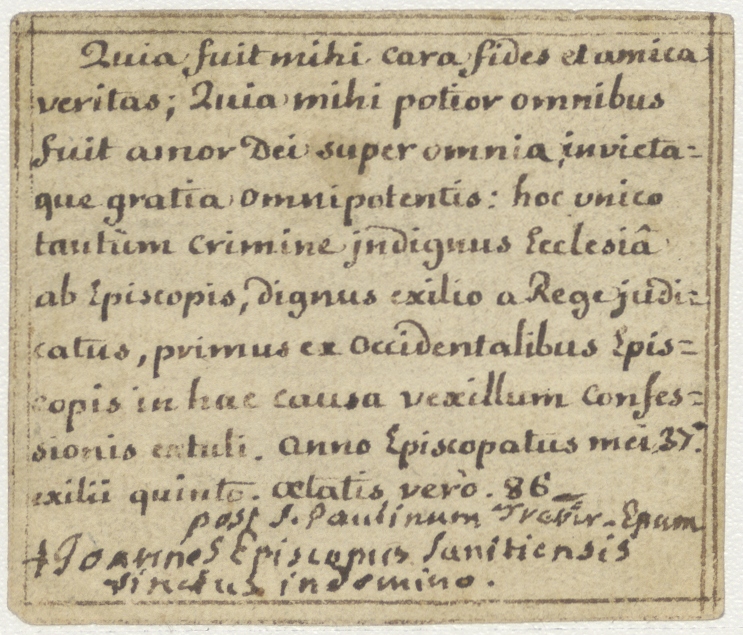 Quia fuit mihi cara fides et amica
veritas; Quia mihi potior omnibus
fuit amor Dei super omnia, invicta=
que gratia omnipotentis: hoc unico
tantùm crimine jndignus Ecclesiâ
ab Episcopis, dignus exilio a Rege judi=
catus, primus ex occidentalibus Epis=
copis in hac causa vexillum confes=
sionis extuli. Anno Episcopatus mei 37.°
exilii quinto. ætatis verò. 86
post S. Paulinum Trevir. Epum
+ Joannes Episcopus Sanitiensis
vinctus in domino.